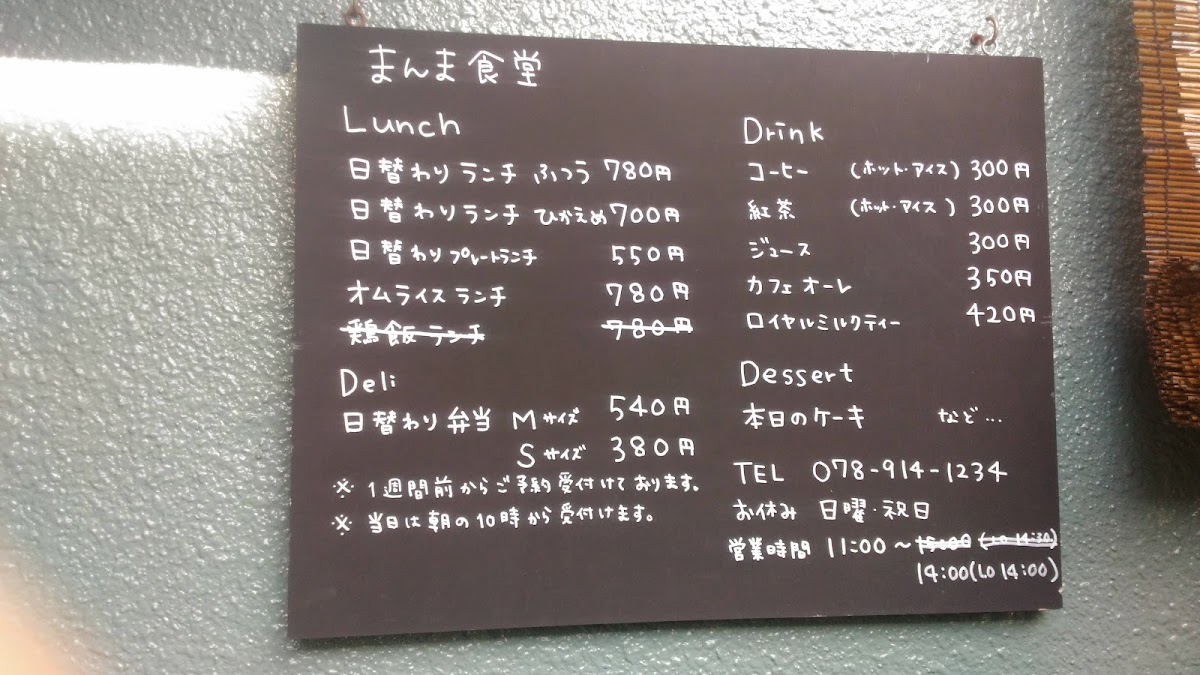 まんま食堂
Lunch
日替わりランチ ふつう 780円
日替わりランチ ひかえめ 700円
日替わりプレートランチ 550円
オムライスランチ 780円
鶏飯ランチ 780円
Deli
日替わり弁当 Mサイズ 540円
Sサイズ 380円
※ 1週間前からご予約受付けております。
※ 当日は朝の10時から受付けます。
Drink
コーヒー (ホット・アイス) 300円
紅茶 (ホット・アイス) 300円
ジュース 300円
カフェオーレ 350円
ロイヤルミルクティー 420円
Dessert
本日のケーキ など…
TEL 078-914-1234
お休み 日曜・祝日
営業時間 11:00 ~ 15:00 (LO 14:30)
14:00(LO 14:00)